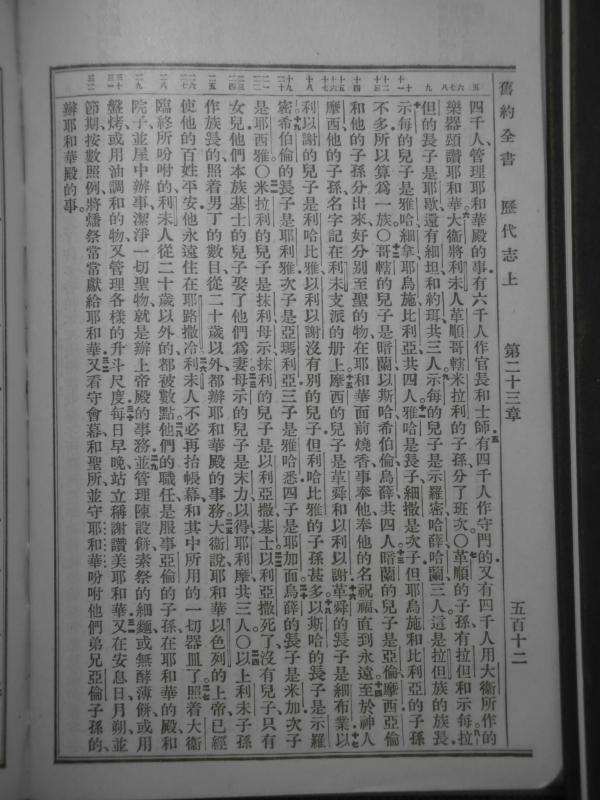 舊約全書 歷代志上 第二十三章 五百十二
四千人管理耶和華殿的事有六千人作官長和士師有四千人作守門的又有四千人用大衛所作的
樂器頌讚耶和華大衛將利未人革順哥轄米拉利的子孫分了班次〇革順的子孫有拉但和示每拉
但的長子是耶歇還有細坦和約珥共三人示每的兒子是示羅密哈薛哈蘭三人這是拉但族的族長
示每的兒子是雅哈細拿耶烏施比利亞共四人雅哈是長子細撒是次子但耶烏施和比利亞的子孫
不多所以算爲一族〇哥轄的兒子是暗蘭以斯哈希伯倫烏薛共四人暗蘭的兒子是亞倫摩西亞倫
和他的子孫分出來好分別至聖的物在耶和華面前燒香事奉他奉他的名祝福直到永遠至於神人
摩西他的子孫名字記在利未支派的册上摩西的兒子是革舜和以利以謝革舜的長子是細布業以
利以謝的兒子是利哈比雅以利以謝沒有別的兒子但利哈比雅的子孫甚多以斯哈的長子是示羅
密希伯倫的長子是耶利雅次子是亞瑪利亞三子是雅哈悉四子是耶加面烏薛的長子是米加次子
是耶西雅〇米拉利的兒子是抹利母示抹利的兒子是以利亞撒基士以利亞撒死了沒有兒子只有
女兒他們本族基士的兒子娶了他們爲妻母示的兒子是末力以得耶利摩共三人〇以上利未子孫
作族長的照着男丁的數目從二十歲以外都辦耶和華殿的事務大衛說耶和華以色列的上帝已經
使他的百姓平安他永遠住在耶路撒冷利未人不必再抬帳幕和其中所用的一切器皿了照着大衛
臨終所吩咐的利未人從二十歲以外的都被數點他們的職任是服事亞倫的子孫在耶和華的殿和
院子並屋中辦事潔淨一切聖物就是辦上帝殿的事務並管理陳設餅素祭的細麵或無酵薄餅或用
盤烤或用油調和的物又管理各樣的升斗尺度每日早晚站立稱謝讚美耶和華又在安息日月朔並
節期按數照例將燔祭當當獻給耶和華又看守會幕和聖所並守耶和華吩咐他們弟兄亞倫子孫的
辦耶和華殿的事